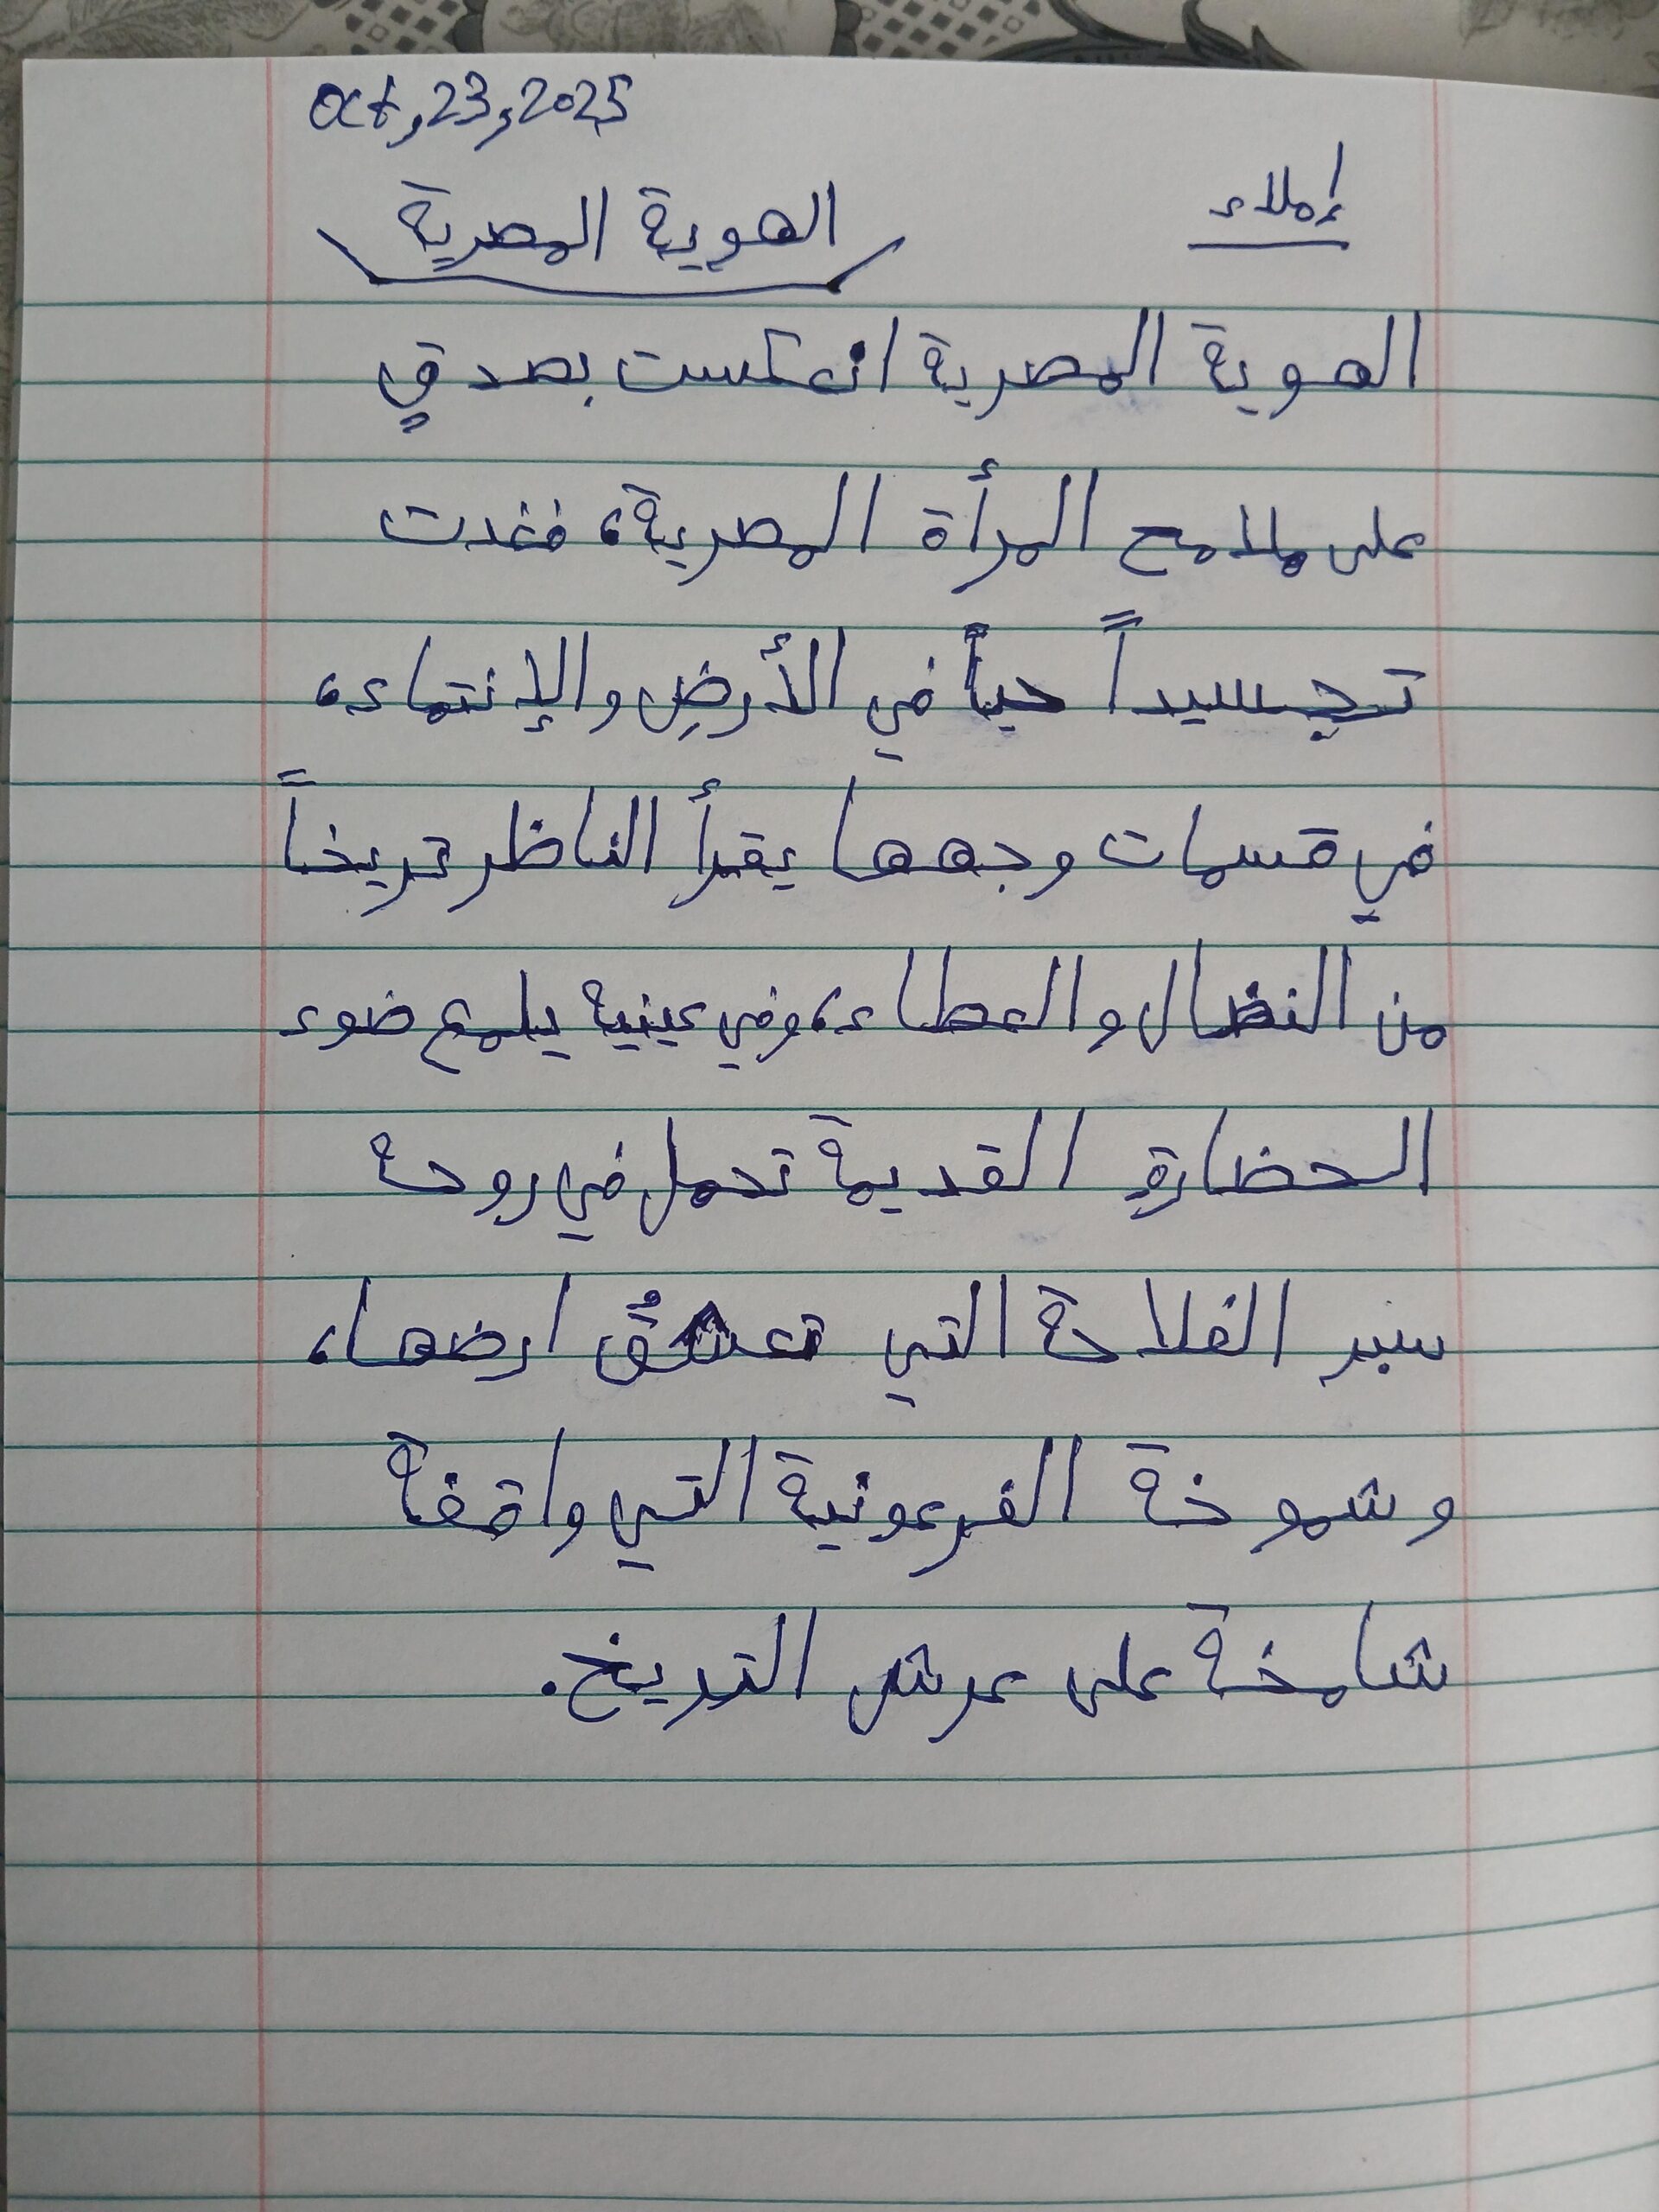 Oct,23,2025
إملاء
الهوية المصرية
الهوية المصرية انعكست بصدقٍ
على ملامح المرأة المصرية، فغدت
تجسيداً حياً في الأرضِ والإنتماء،
في قسمات وجهها يقرأ الناظر تريخاً
من النضال والعطاء، وفي عينية يلمع ضوء
الحضارةِ القديمة تحمل في روحة
سبر الفلاحة التي تعشقُ ارضها،
وشموخة الفرعونية التي واقفة
شامخة على عرش التريخ.